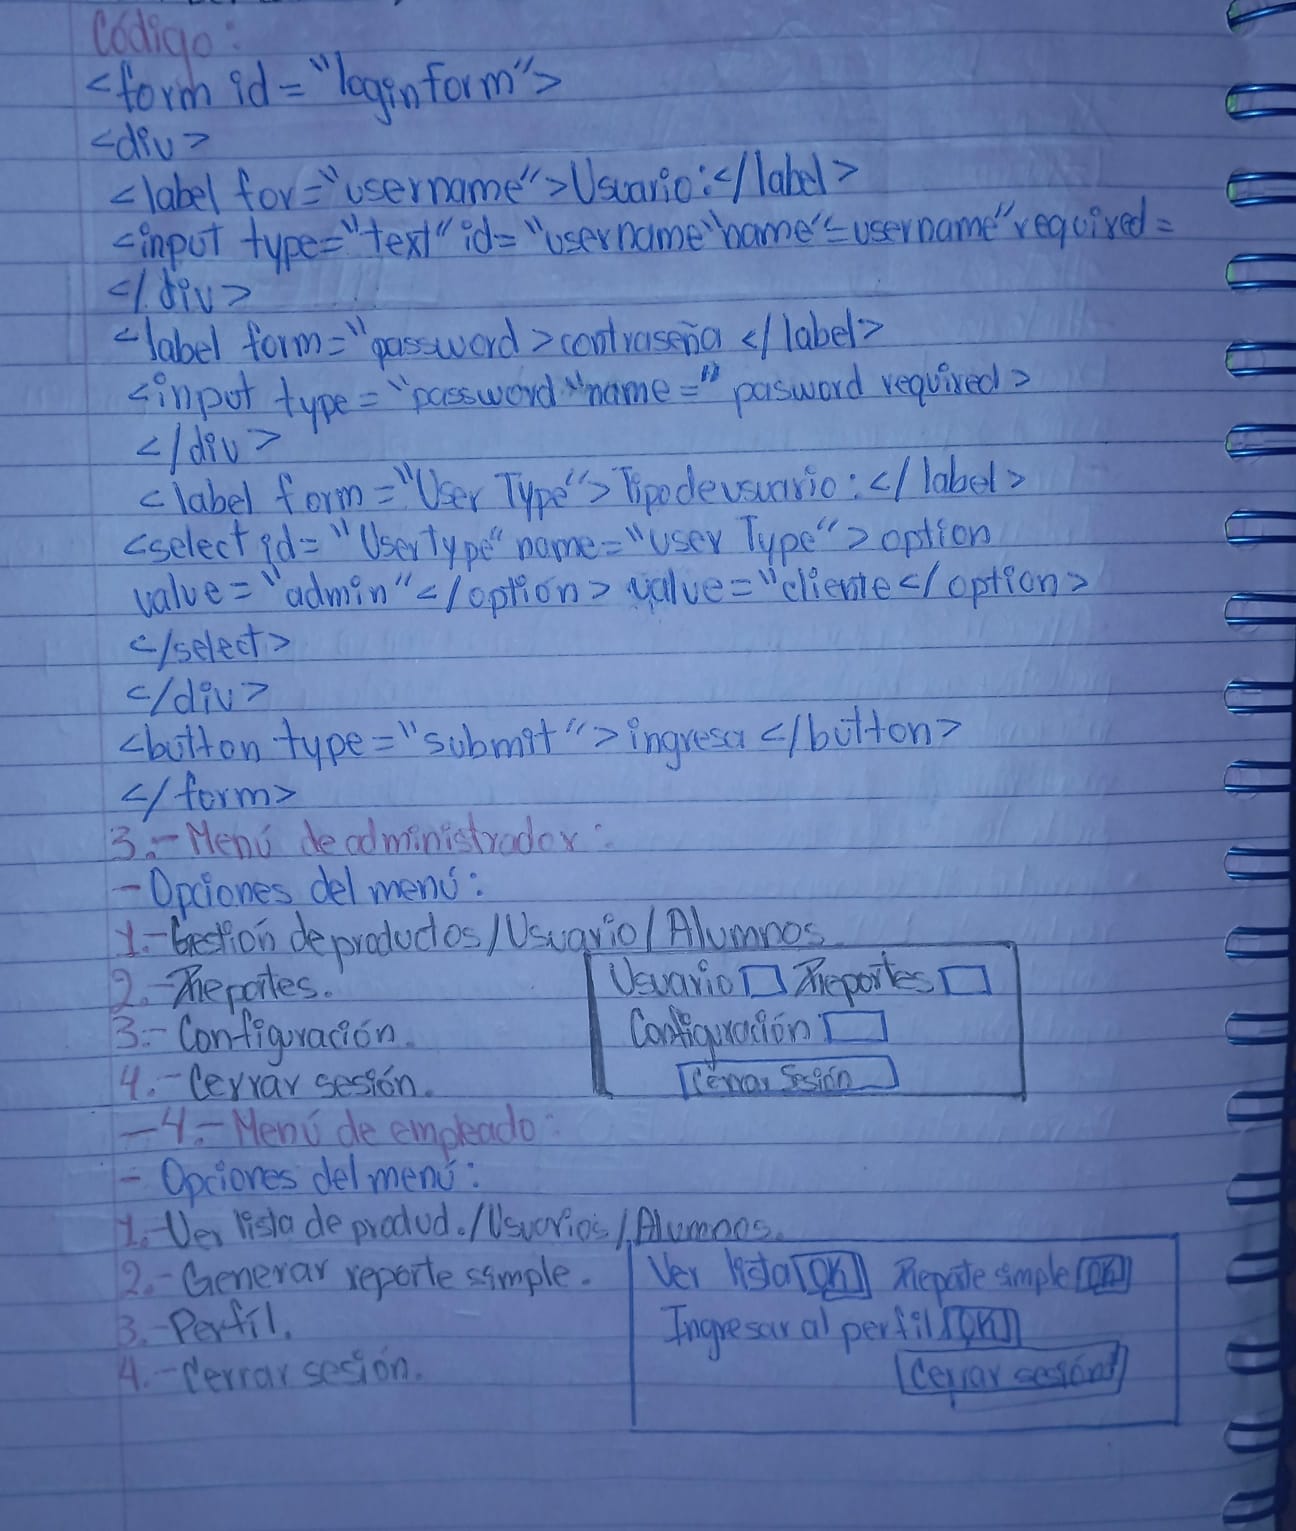 Código:
<form id="loginform">
<div>
<label for="username">Usuario:</label>
<input type="text" id="username"name"=username"required=
</div>
<label form="password>contraseña </label>
<input type="password"name=" pasword required>
</div>
<label form="User Type">Tipo de usuario:</label>
<select id="Usertype" name="user Type">option
value="admin"</option> value="cliente</option>
</select>
</div>
<button type="submit">ingresa </button>
</form>
3.- Menú de administrador:
- Opciones del menú:
1.- Gestión de productos/Usuario/Alumnos
2.- Reportes.
3.- Configuración.
4.- Cerrar sesión.
Usuario Reportes
Configuración
Cerrar Sesión
-4.- Menú de empleado:
- Opciones del menú:
1.- Ver lista de produd./Usuarios/Alumnos.
2.- Generar reporte simple.
3.- Perfíl.
4.- Cerrar sesión.
Ver lista OK Reporte simple OK
Ingresar al perfil OK
Cerrar sesión